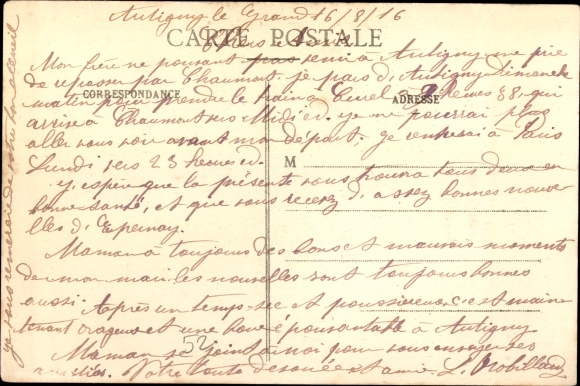 Autigny le Grand 16/8/16
CARTE POSTALE
Chers Amis
Mon frère ne pouvant pas venir à Autigny me prie
de repasser par Chaumont, je pars d'Autigny Dimanche
CORRESPONDANCE
ADRESSE
matin pour prendre le train à Curel à heures 38, qui
arrive à Chaumont vers Midi et je ne pourrai plus
aller vous voir avant mon départ, je rentrerai à Paris
Lundi vers 23 heures
M
J'espère que la présente vous trouvera tous deux en
bonne santé, et que vous recevez d'assez bonnes nouve
lles d'Epernay.
Maman a toujours des bons et mauvais moments
de mon mari les nouvelles sont toujours bonnes
aussi. Après un temps sec et poussiéreux, c'est mainte
tenant orageux et une boue épouvantable à Autigny
52
Maman se joint à moi pour vous envoyer ses
amitiés. Votre toute dévouée amie. L. Robillard
je vous remercie de votre bon accueil